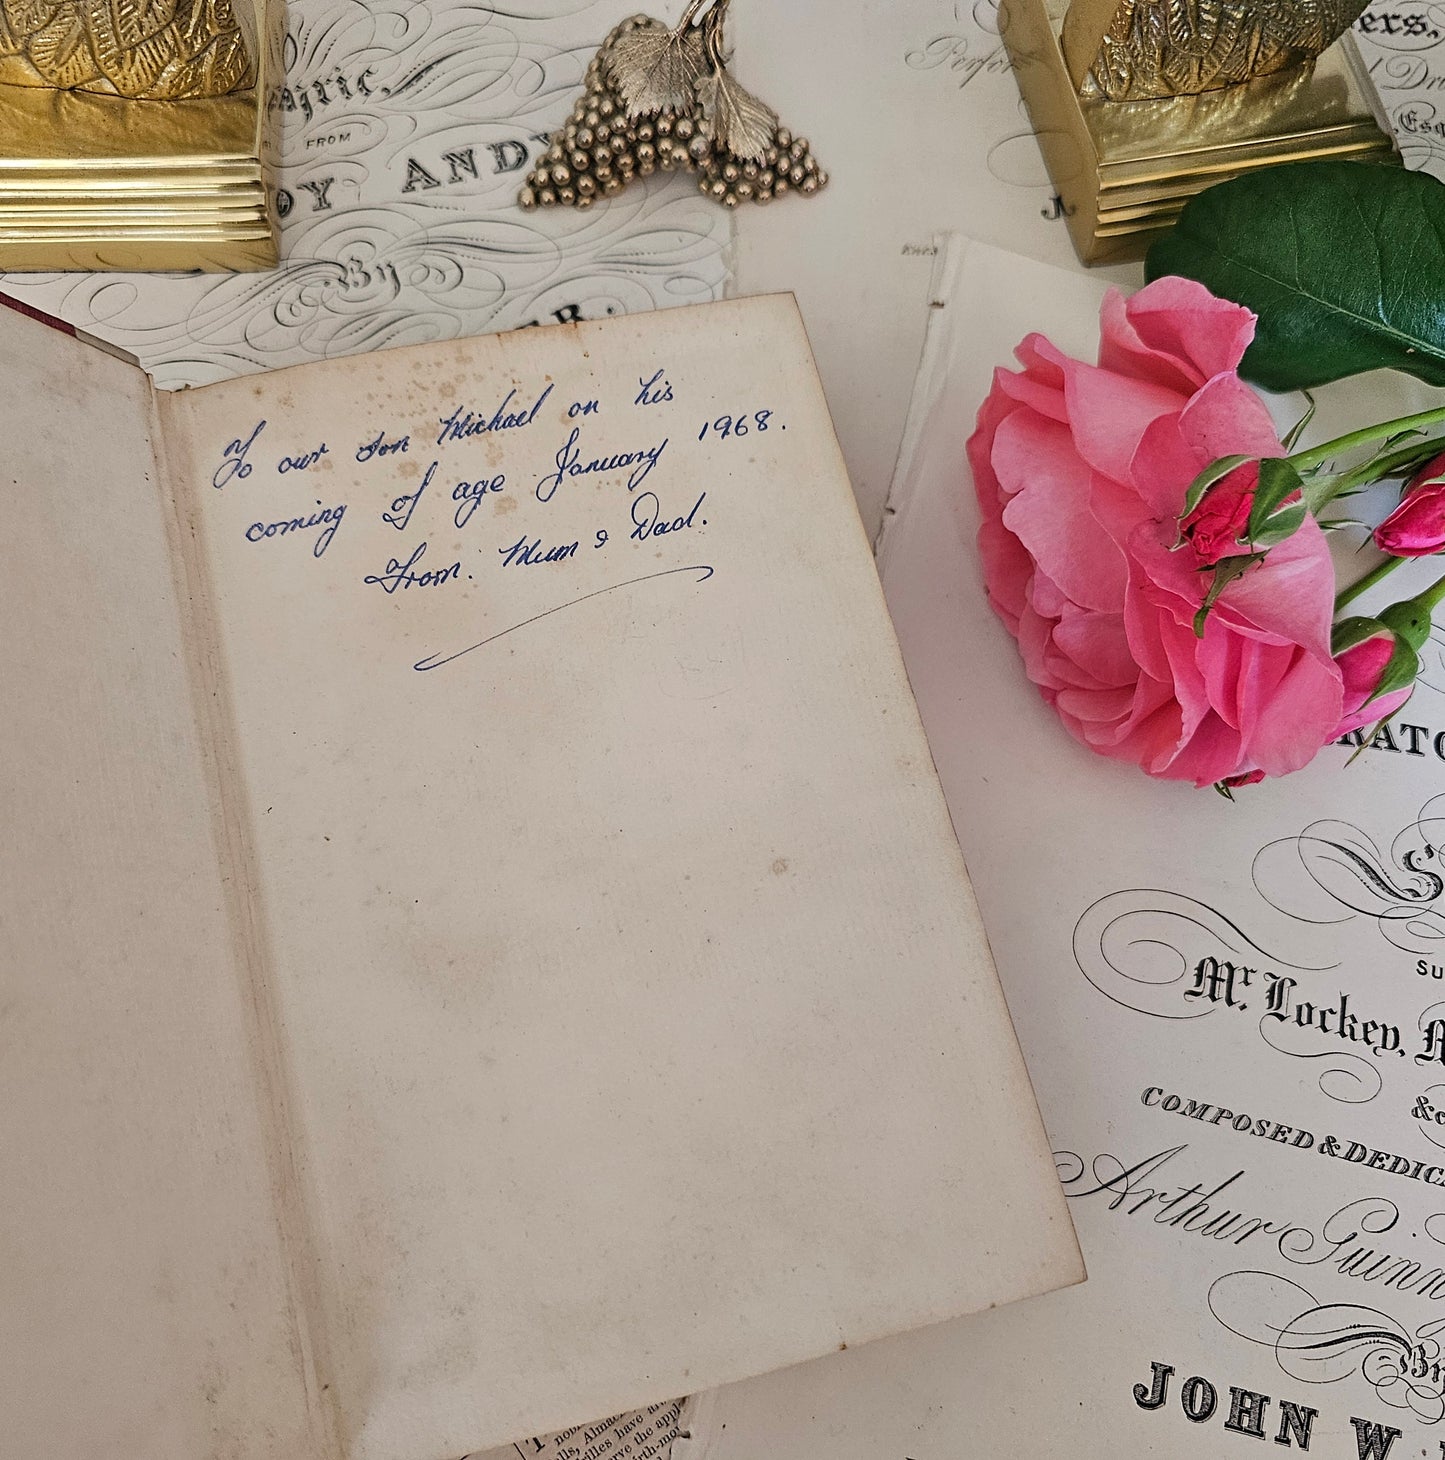 FROM
ANDY
By
ers,
Perfor
Esq
To our son Michael on his
coming of age January 1968.
From. Mum & Dad.
RATO
SU
Mr. Lockey,
&c
COMPOSED & DEDICA
Arthur Guinn
By
JOHN W